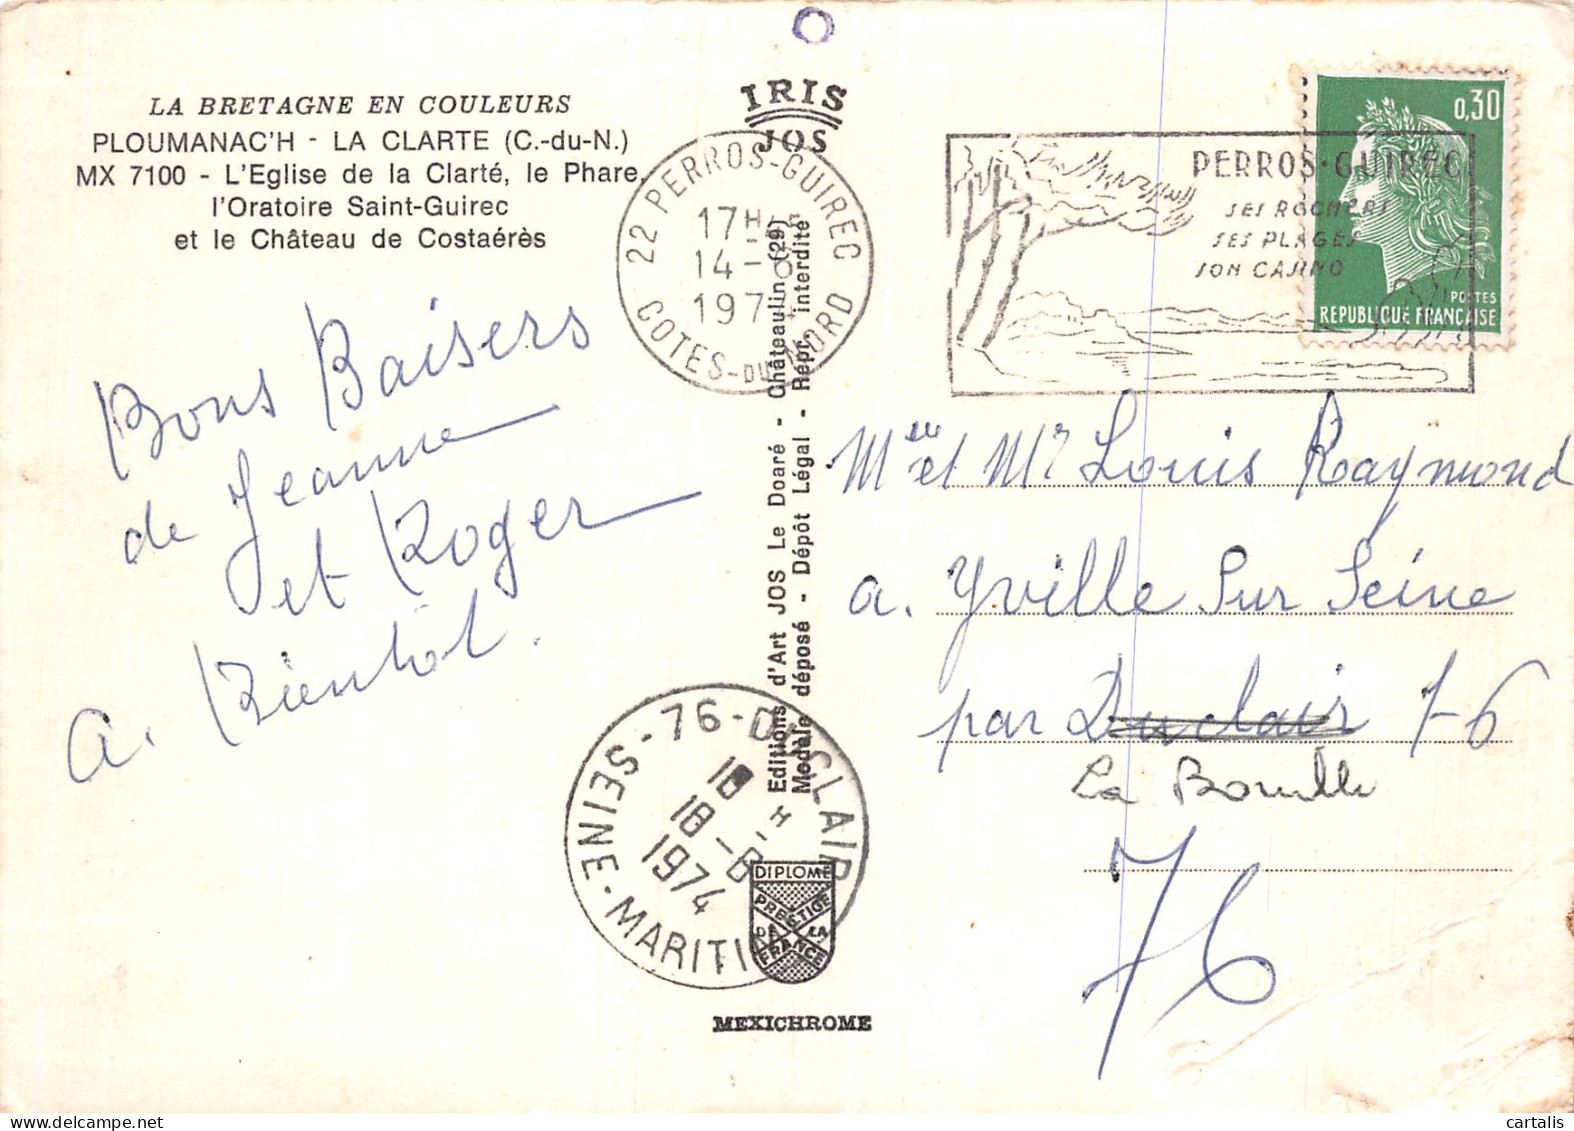 LA BRETAGNE EN COULEURS
PLOUMANAC'H - LA CLARTE (C.-du-N.)
MX 7100 - L'Eglise de la Clarté, le Phare,
l'Oratoire Saint-Guirec
et le Château de Costaérès
IRIS
JOS
22 PERROS-GUIREC
17H
14-8
1974
COTES-DU-NORD
PERROS-GUIREC
SES ROCHERS
SES PLAGES
SON CASINO
0,30
POSTES
REPUBLIQUE FRANÇAISE
Bons Baisers
de Jeanne
et Roger
a. Bientôt.
Editions d'Art JOS Le Doaré - Châteaulin (29)
Modèle déposé - Dépôt Légal - Répr. interdite
Mme et Mr Louis Raymond
a. Yville Sur Seine
par Duclair 76
La Bouille
76
76-DUCLAIR
18-8
1974
SEINE-MARITIME
DIPLOME
PRESTIGE
DE LA
FRANCE
MEXICHROME
cartalis